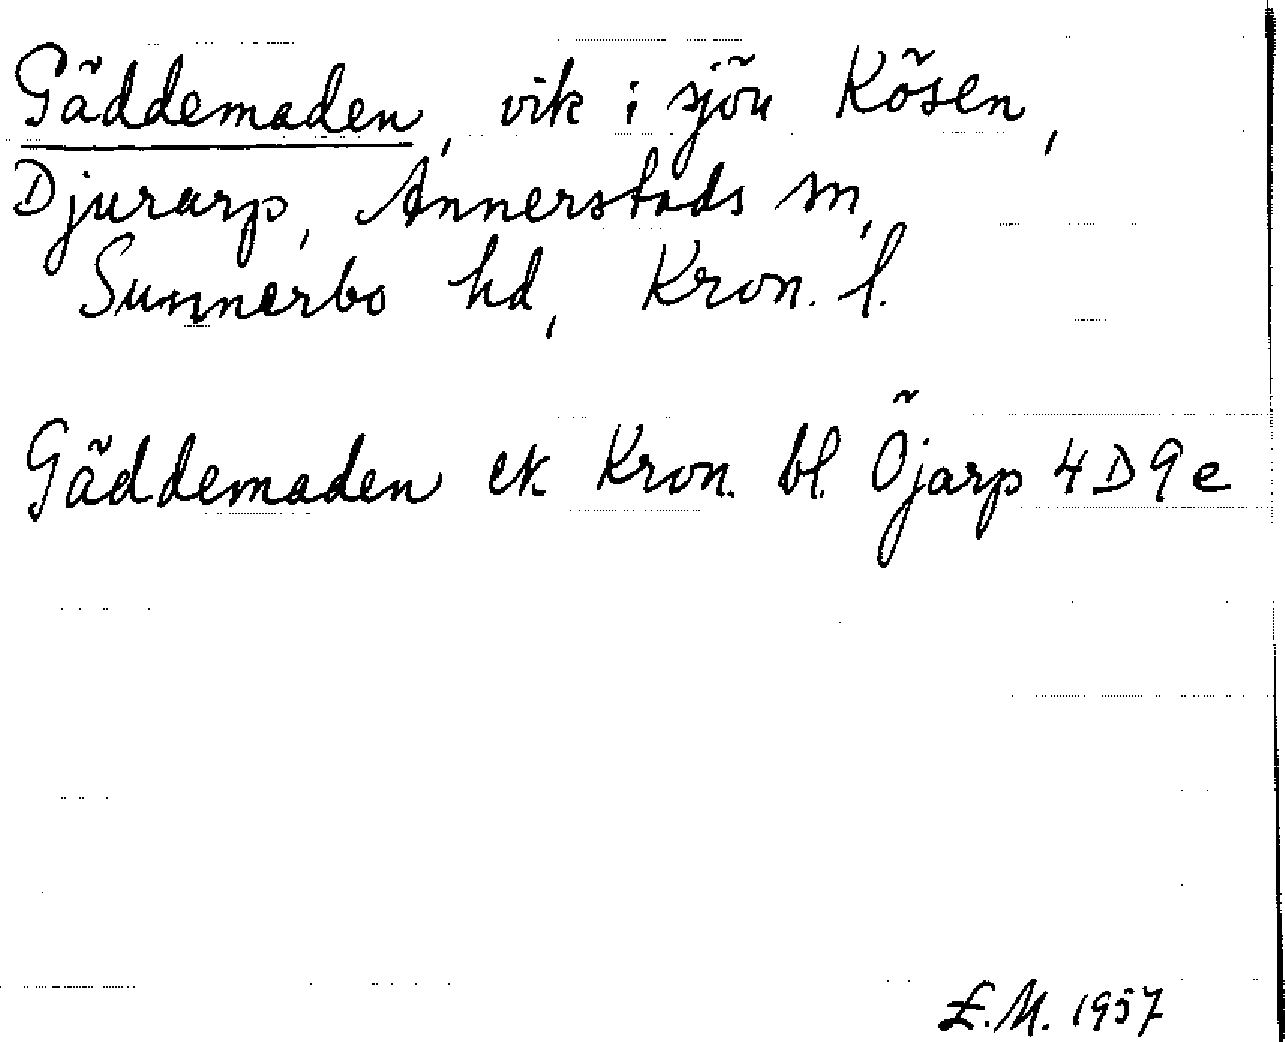 Gäddemaden, vik i sjön Kösen,
Djurarp, Annerstads sn,
Sunnerbo hd, Kron. l.
Gäddemaden ek Kron. bl. Öjarp 4D9e
E.M. 1957